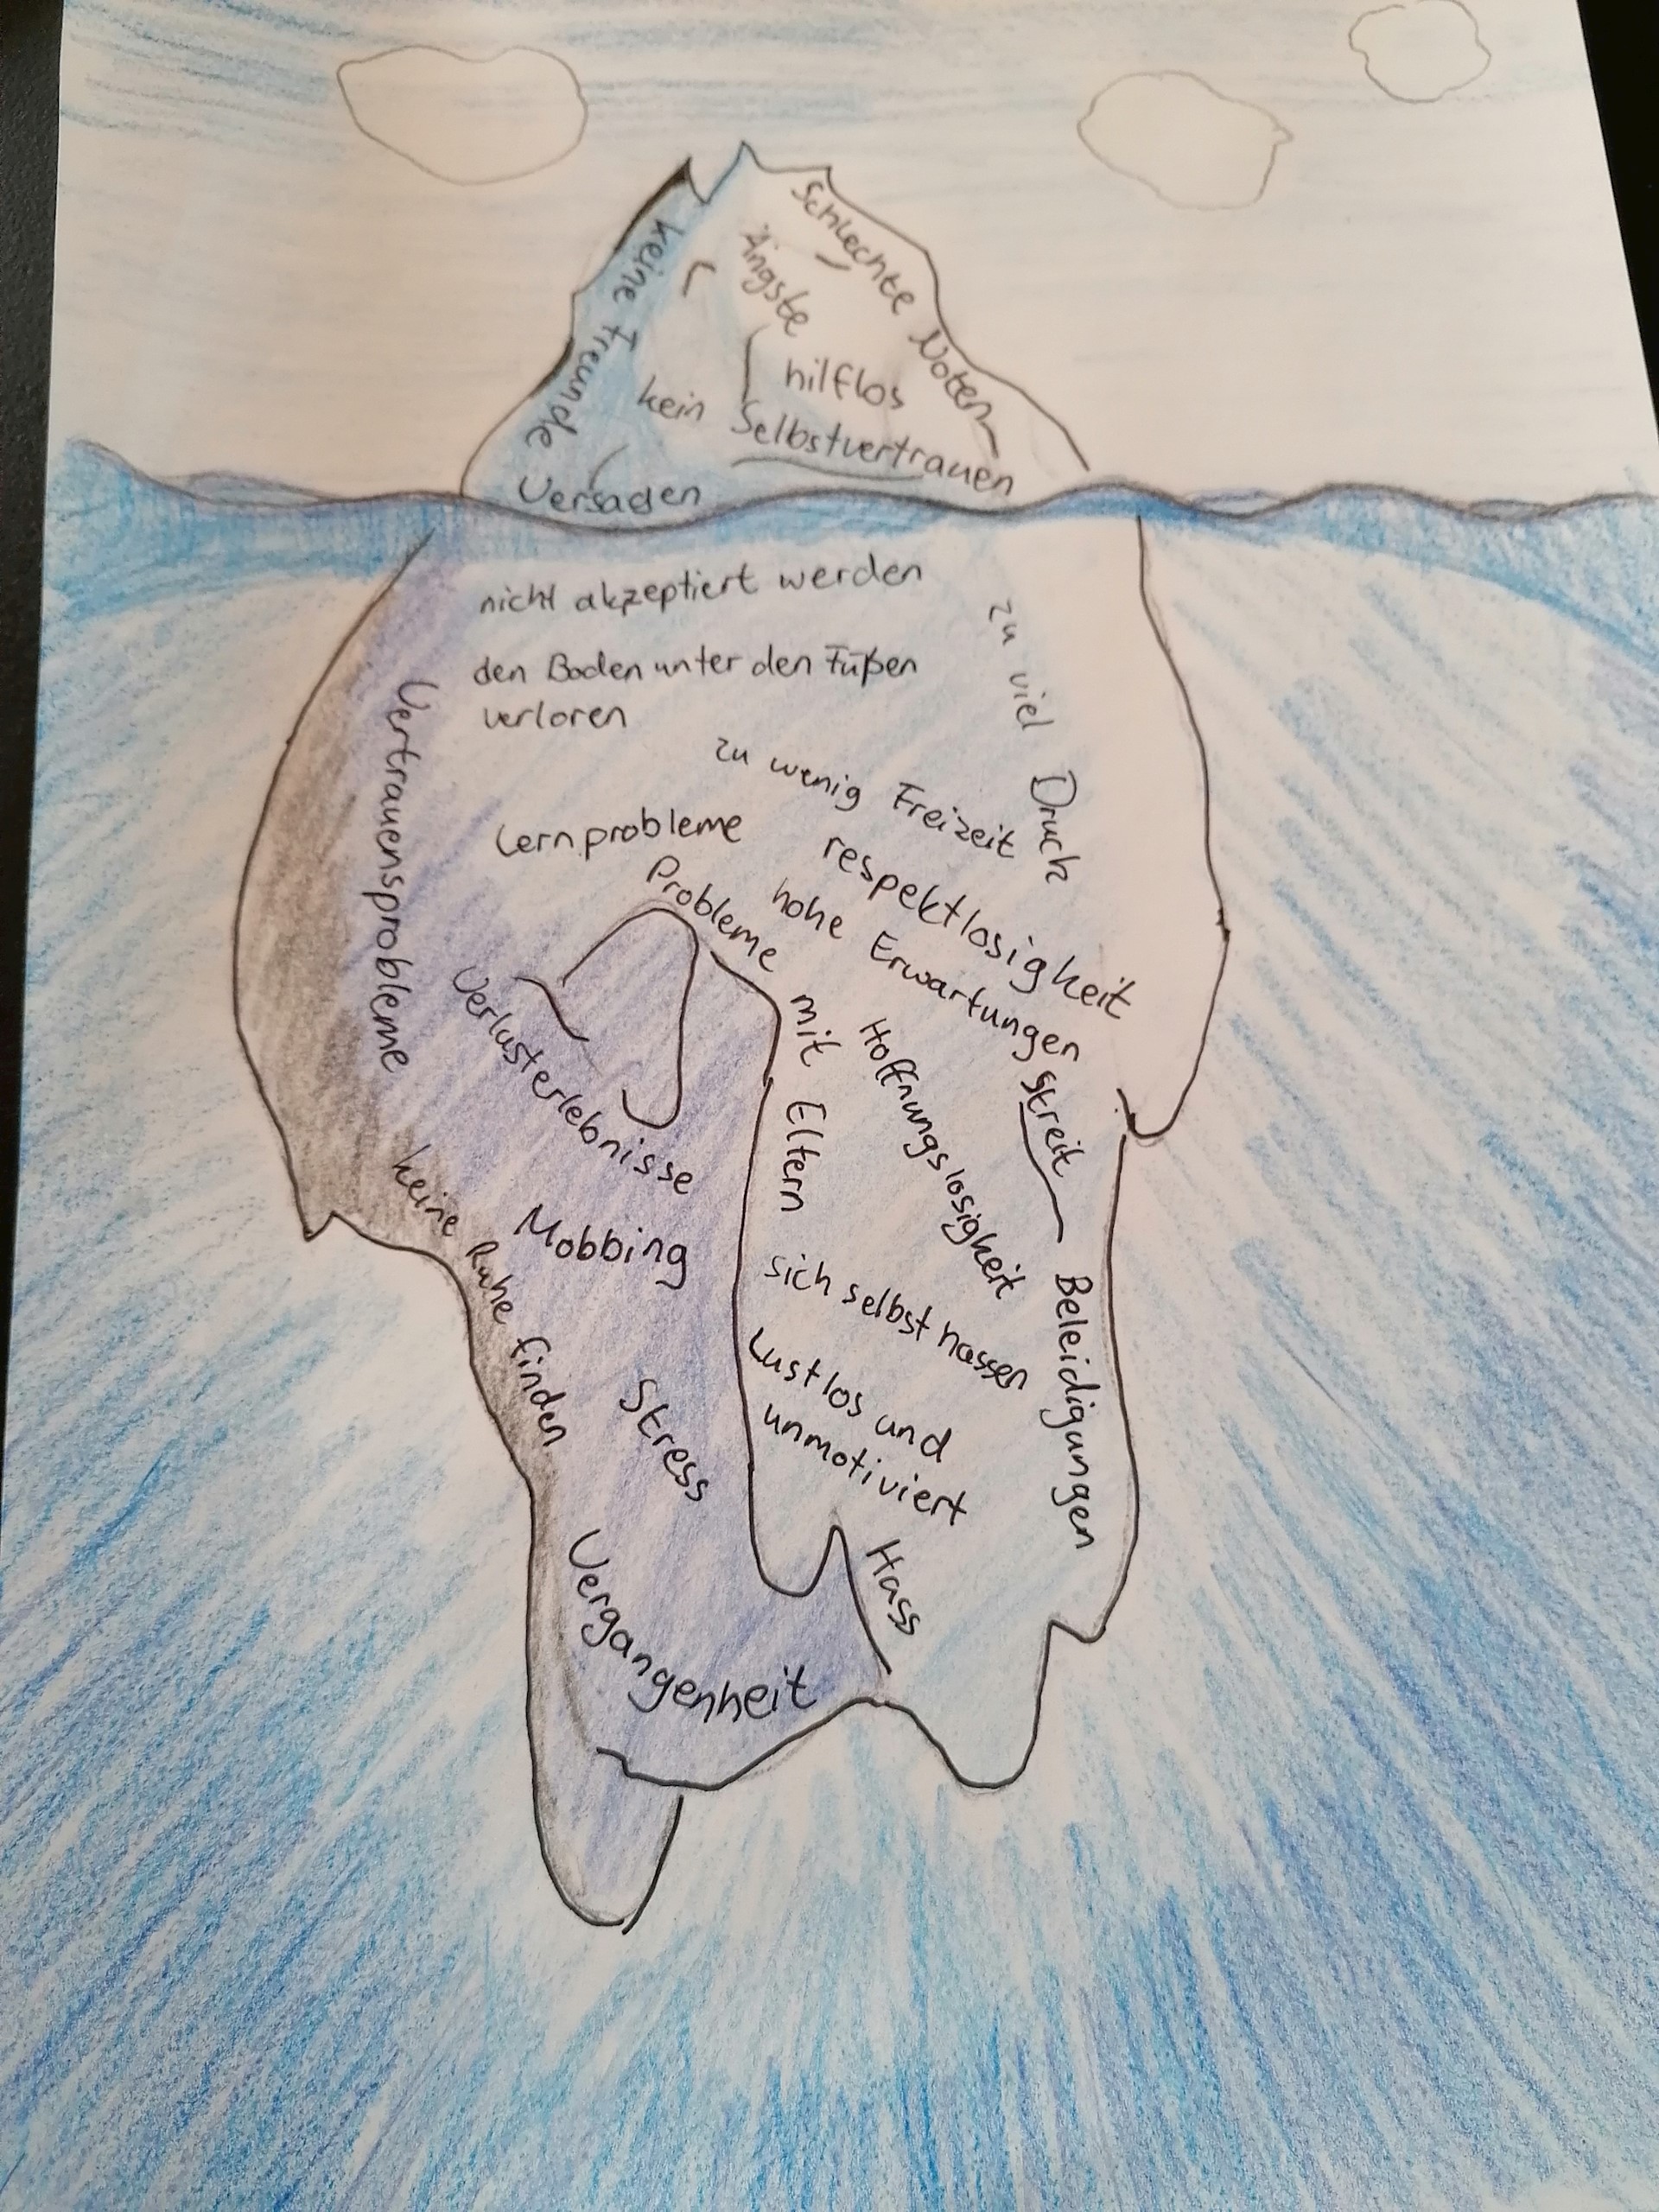 Schlechte Noten
keine Freunde
Ängste
hilflos
kein Selbstvertrauen
Versagen
nicht akzeptiert werden
den Boden unter den Füßen
verloren
zu viel Druck
zu wenig Freizeit
Vertrauensprobleme
Lernprobleme
respektlosigkeit
hohe Erwartungen
Probleme mit Eltern
Verlusterlebnisse
Hoffnungslosigkeit
Streit
keine Ruhe finden
Mobbing
sich selbst hassen
Beleidigungen
Lustlos und
unmotiviert
Stress
Hass
Vergangenheit